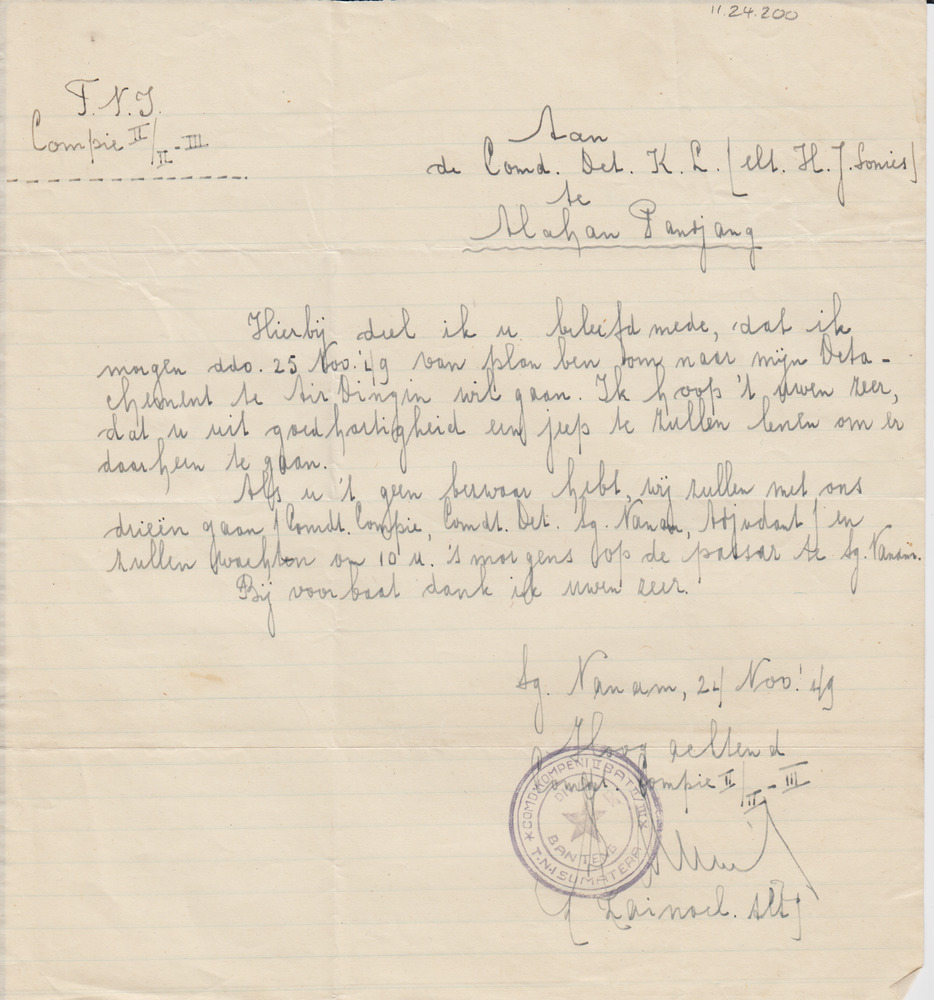 11.24.200
T.N.I.
Compie II/II-III
Aan
de Comd. Det. K. L. (elt. H. J. Somies)
te
Alahan Pandjang
Hierbij deel ik u beleefd mede, dat ik
morgen ddo. 25 Nov.'49 van plan ben om naar mijn Deta-
chement te Air Dingin wil gaan. Ik hoop 't uwen zeer,
dat u uit goedhartigheid een jeep te zullen lenen om er
daarheen te gaan.
Als u 't geen berwaar hebt, wij zullen met ons
drieën gaan (Comdt. Compie, Comdt. Det. Sg. Nanam, Adjudant) en
zullen wachten om 10 u. 's morgens op de passar te Sg. Nanam.
Bij voorbaat dank ik uwen zeer.
Sg. Nanam, 24 Nov.'49
Hoog achtend
Comdt. Compie II/II-III
COMDO KOMPENI II BAT II/III
BANTENG
T.N.I SUMATERA
(Zainoel. Alt)